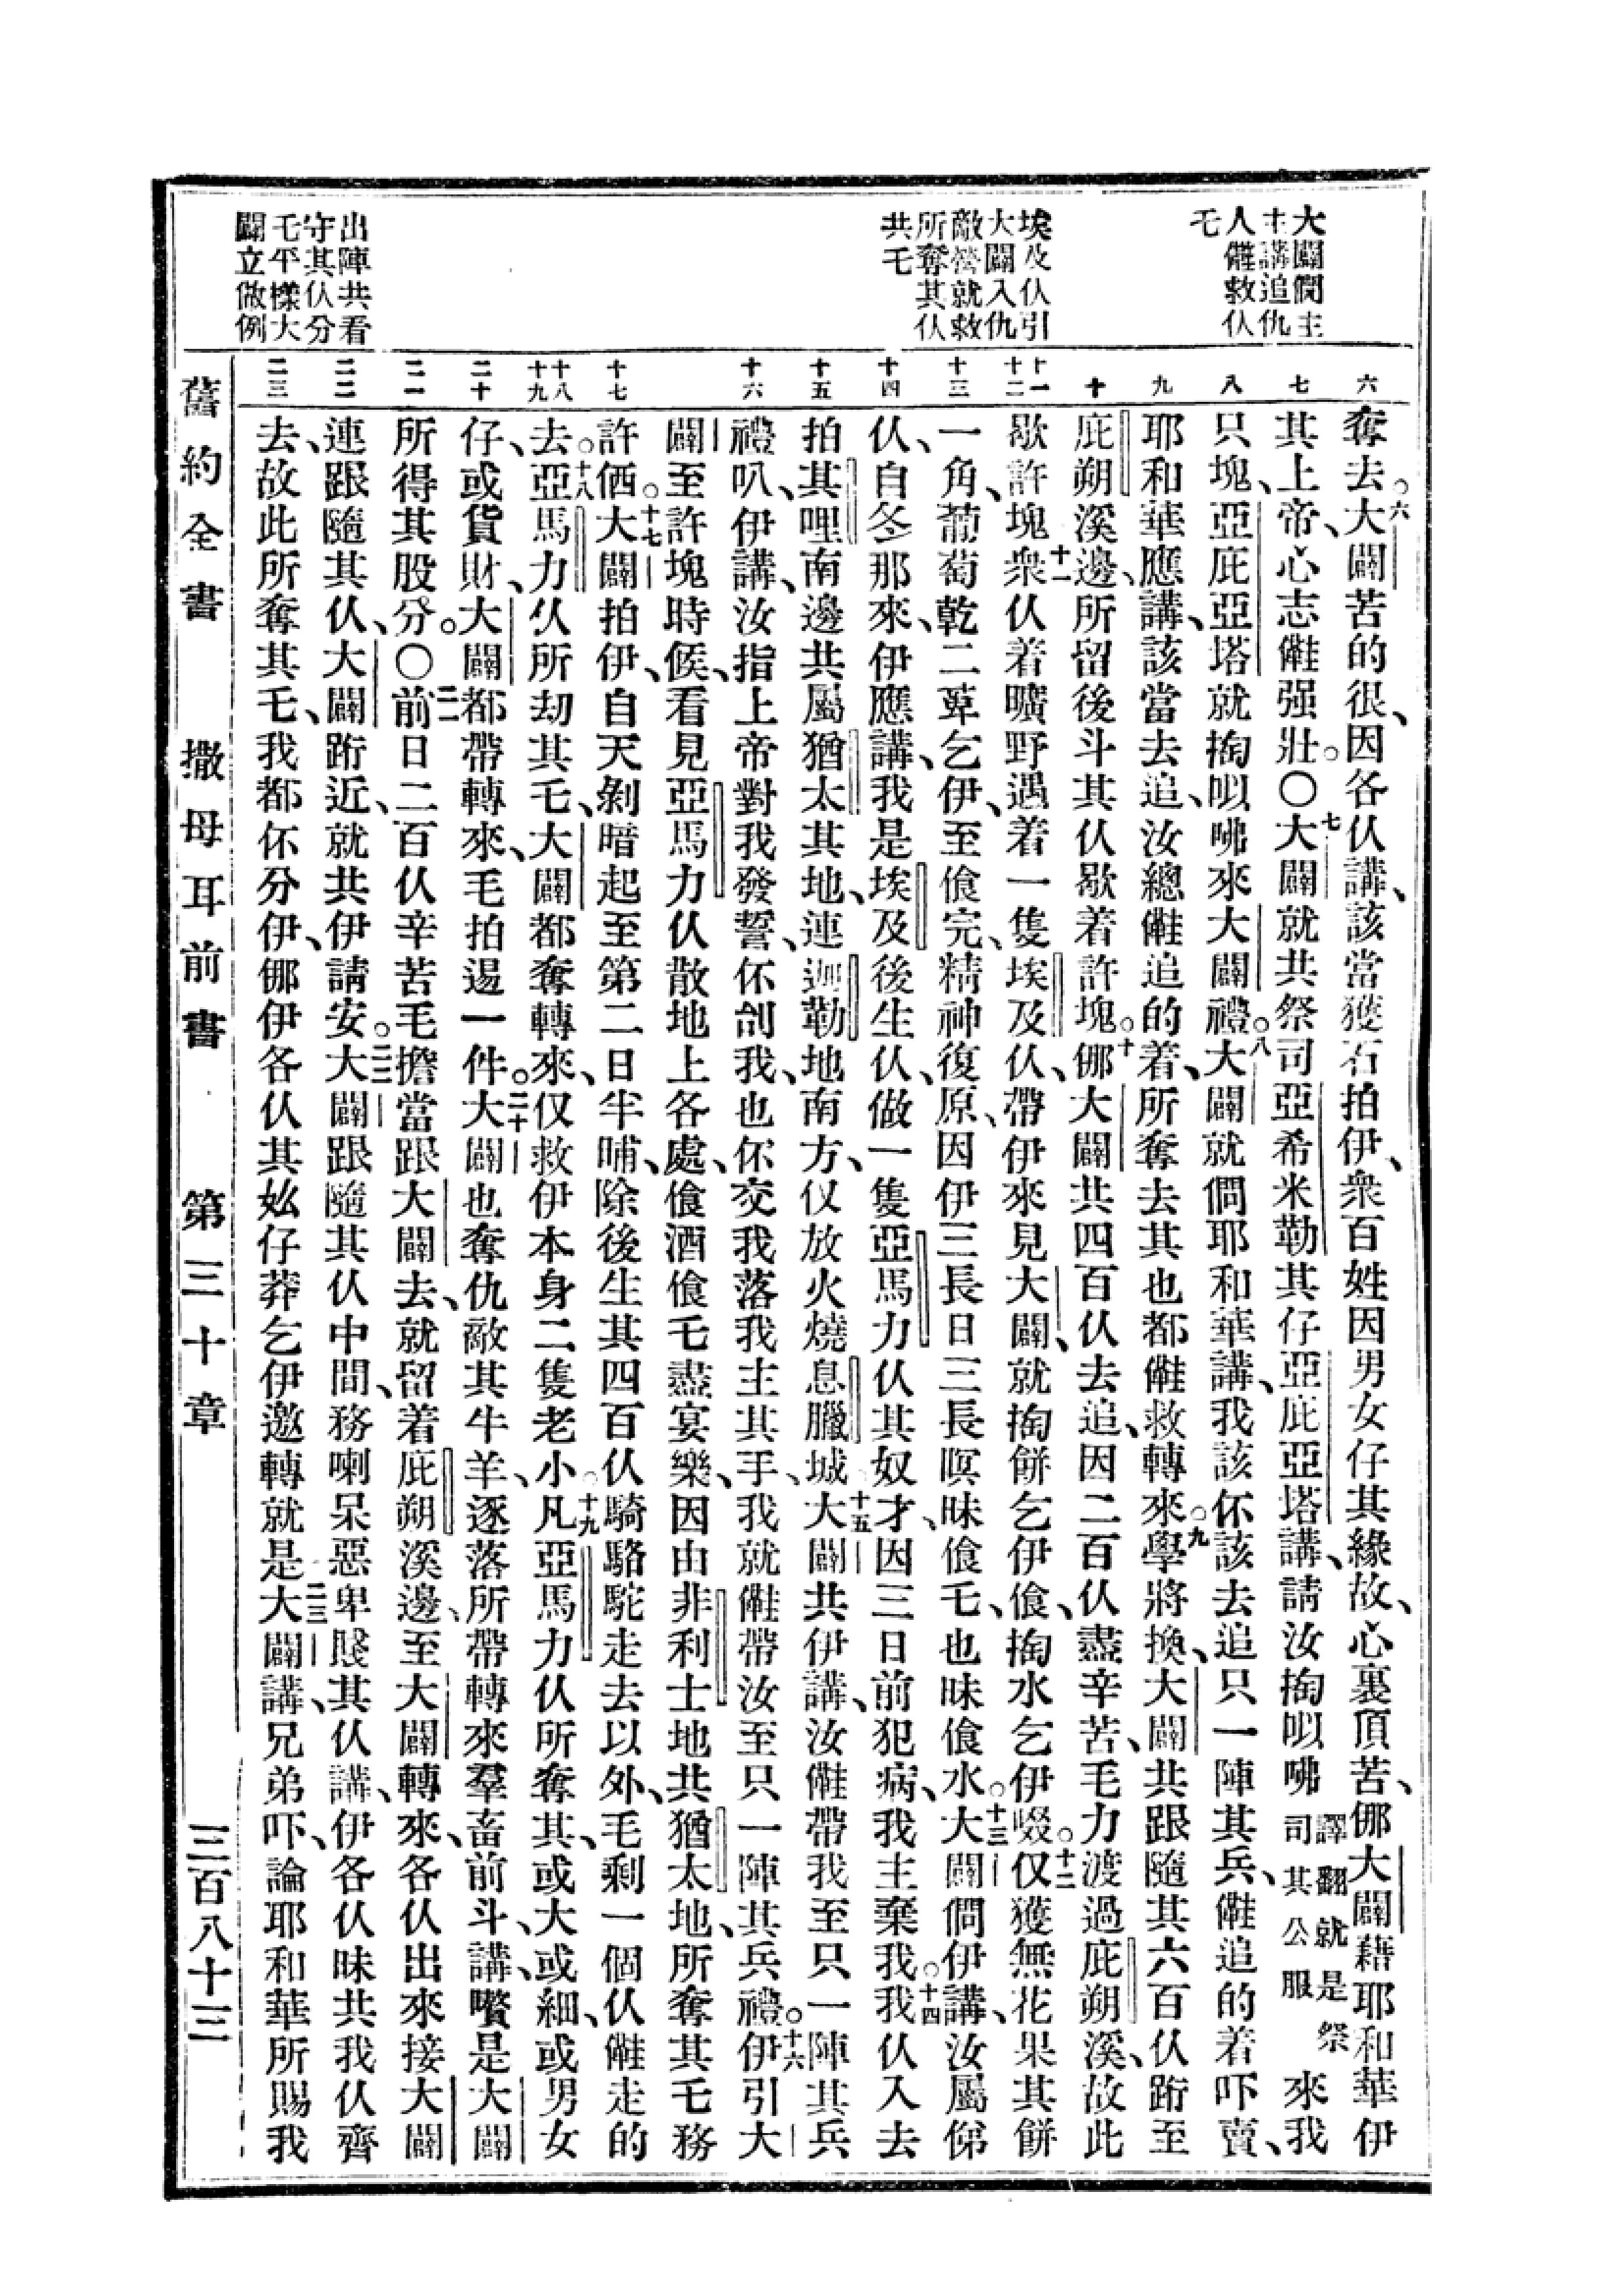 大闢問主
主講追仇
人𠆧救仫
乇
埃及仫引
大闢入仇
敵營就救
所奪其仫
共乇
出陣共看
守其仫分
乇平樣大
闢立做例
六
七
八
九
十
十一
十二
十三
十四
十五
十六
十七
十八
十九
二十
二一
二二
二三
奪去。六大闢苦的很、因各仫講、該當獲石拍伊、衆百姓因男女仔其緣故、心裏頂苦、倻大闢藉耶和華伊
其上帝、心志𠆧强壯。〇七大闢就共祭司亞希米勒其仔亞庇亞塔講、請汝掏㕥咈譯翻就是祭司其公服來我
只塊、亞庇亞塔就掏㕥咈來大闢禮。八大闢就問耶和華講、我該伓該去追只一陣其兵、𠆧追的着吓賣、
耶和華應講、該當去追、汝總𠆧追的着、所奪去其也都𠆧救轉來。九學將換、大闢共跟隨其六百仫跨至
庇朔溪邊、所留後斗其仫歇着許塊。十倻大闢共四百仫去追、因二百仫盡辛苦、毛力渡過庇朔溪、故此
歇許塊十一衆仫着曠野遇着一隻埃及仫、帶伊來見大闢、就掏餅乞伊飡、掏水乞伊啜。十二仅獲無花果其餅
一角、葡萄乾二𦱤乞伊、至飡完、精神復原、因伊三長日三長暝昧飡乇、也昧飡水。十三大闢問伊講、汝屬俤
仫、自冬那來、伊應講、我是埃及後生仫、做一隻亞馬力仫其奴才、因三日前犯病、我主棄我。十四我仫入去
拍其哩南邊共屬猶太其地、連迦勒地南方、仅放火燒息臘城十五大闢共伊講、汝𠆧帶我至只一陣其兵
禮叭、伊講、汝指上帝對我發誓、伓刣我、也伓交我落我主其手、我就𠆧帶汝至只一陣其兵禮。十六伊引大
闢至許塊時候、看見亞馬力仫散地上各處、飡酒飡乇盡宴樂、因由非利士地共猶太地、所奪其乇務
許価。十七大闢拍伊、自天剝暗起至第二日半晡、除後生其四百仫騎駱駝走去以外、毛剩一個仫𠆧走的
去。十八亞馬力仫所刧其乇、大闢都奪轉來、仅救伊本身二隻老小。十九凡亞馬力仫所奪其、或大或細、或男女
仔、或貨財、大闢都帶轉來、毛拍逿一件。二十大闢也奪仇敵其牛羊、逐落所帶轉來羣畜前斗、講嚽是大闢
所得其股分。〇二一前日二百仫辛苦毛擔當跟大闢去、就留着庇朔溪邊、至大闢轉來、各仫出來接大闢
連跟隨其仫、大闢跨近、就共伊請安。二二大闢跟隨其仫中間、務喇呆惡卑賤其仫講、伊各仫昧共我仫齊
去、故此所奪其乇、我都伓分伊、倻伊各仫其妐仔莽乞伊邀轉就是二三大闢講、兄弟吓、論耶和華所賜我
舊約全書　撒母耳前書　第三十章　三百八十三